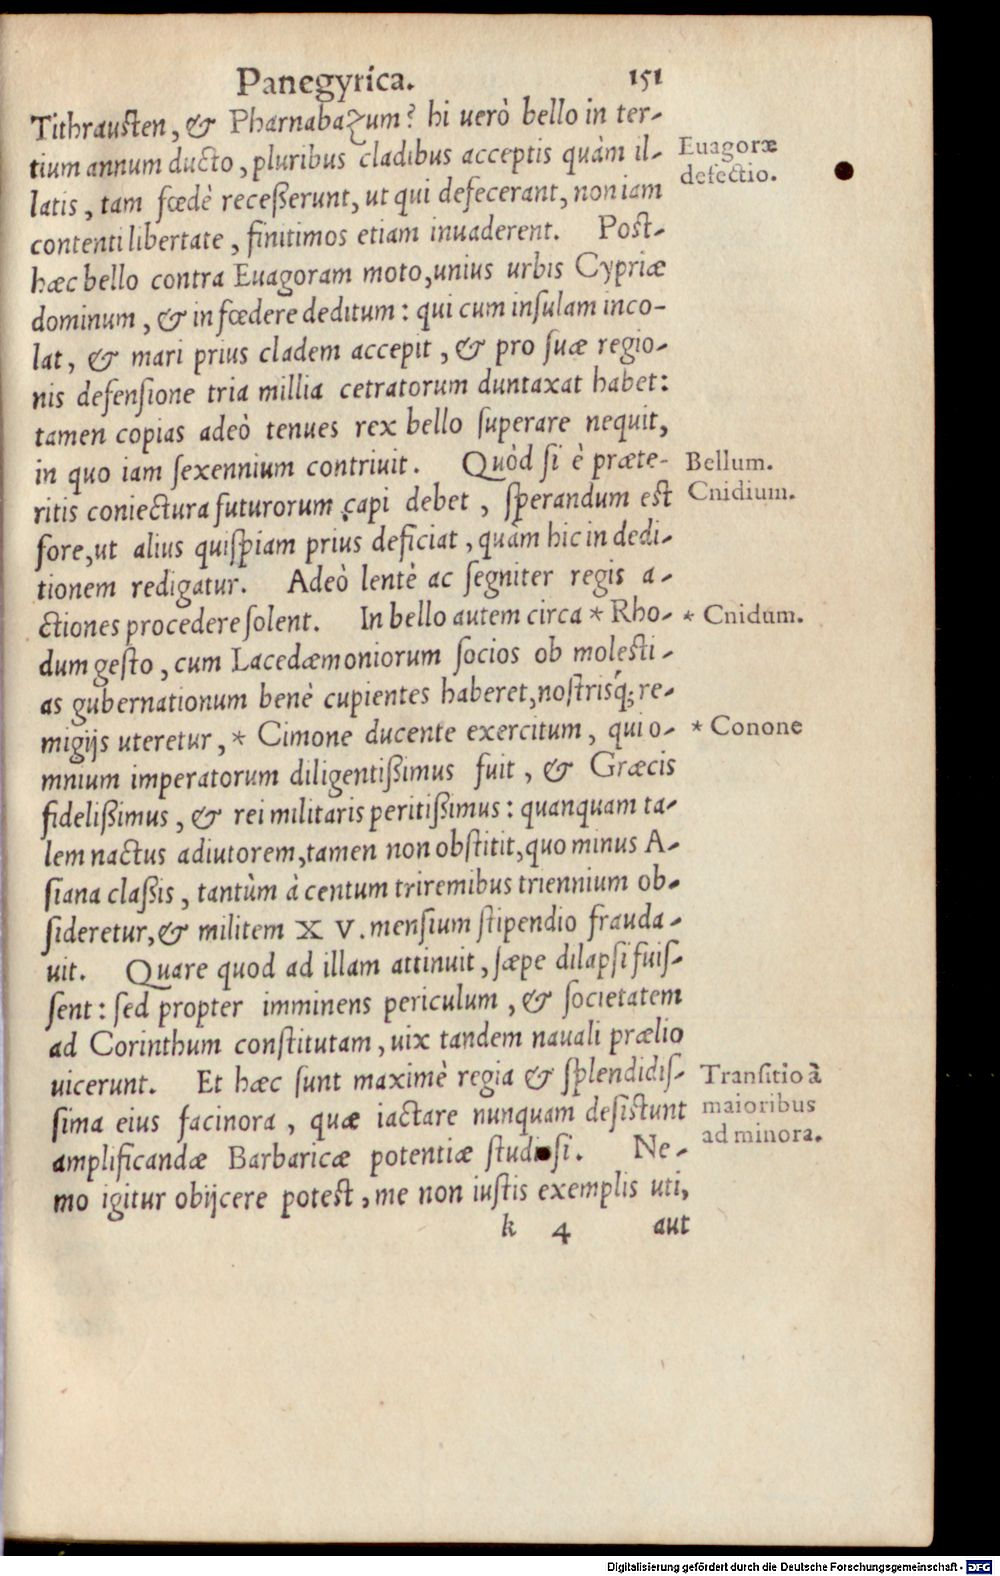 Panegyrica. 151
Tithrausten, & Pharnabazum? hi uerò bello in ter-
tium annum ducto, pluribus cladibus acceptis quàm il-
latis, tam fœdè receßerunt, ut qui defecerant, non iam
contenti libertate, finitimos etiam inuaderent. Post-
hæc bello contra Euagoram moto, unius urbis Cypriæ
dominum, & in fœdere deditum: qui cum inſulam inco-
lat, & mari prius cladem accepit, & pro ſuæ regio-
nis defenſione tria millia cetratorum duntaxat habet:
tamen copias adeò tenues rex bello ſuperare nequit,
in quo iam ſexennium contriuit. Quòd ſi è præte-
ritis coniectura futurorum capi debet, ſperandum est
fore, ut alius quiſpiam prius deficiat, quàm hic in dedi-
tionem redigatur. Adeò lentè ac ſegniter regis a-
ctiones procedere ſolent. In bello autem circa * Rho-
dum geſto, cum Lacedæmoniorum ſocios ob moleſti-
as gubernationum benè cupientes haberet, noſtrisq́; re-
migijs uteretur, * Cimone ducente exercitum, qui o-
mnium imperatorum diligentißimus fuit, & Græcis
fidelißimus, & rei militaris peritißimus: quanquam ta-
lem nactus adiutorem, tamen non obſtitit, quo minus A-
ſiana claßis, tantùm à centum triremibus triennium ob-
ſideretur, & militem X V. menſium ſtipendio frauda-
uit. Quare quod ad illam attinuit, ſæpe dilapſi fuiſ-
ſent: ſed propter imminens periculum, & ſocietatem
ad Corinthum conſtitutam, uix tandem nauali prælio
uicerunt. Et hæc ſunt maximè regia & ſplendidiſ-
ſima eius facinora, quæ iactare nunquam deſiſtunt
amplificandæ Barbaricæ potentiæ ſtudioſi. Ne-
mo igitur obijcere potest, me non iuſtis exemplis uti,
k 4 aut
Euagoræ
defectio.
Bellum.
Cnidium.
* Cnidum.
* Conone
Tranſitio à
maioribus
ad minora.
Digitalisierung gefördert durch die Deutsche Forschungsgemeinschaft - DFG